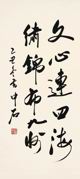 文心連四海
绣錦布九州
乙丑冬書中石